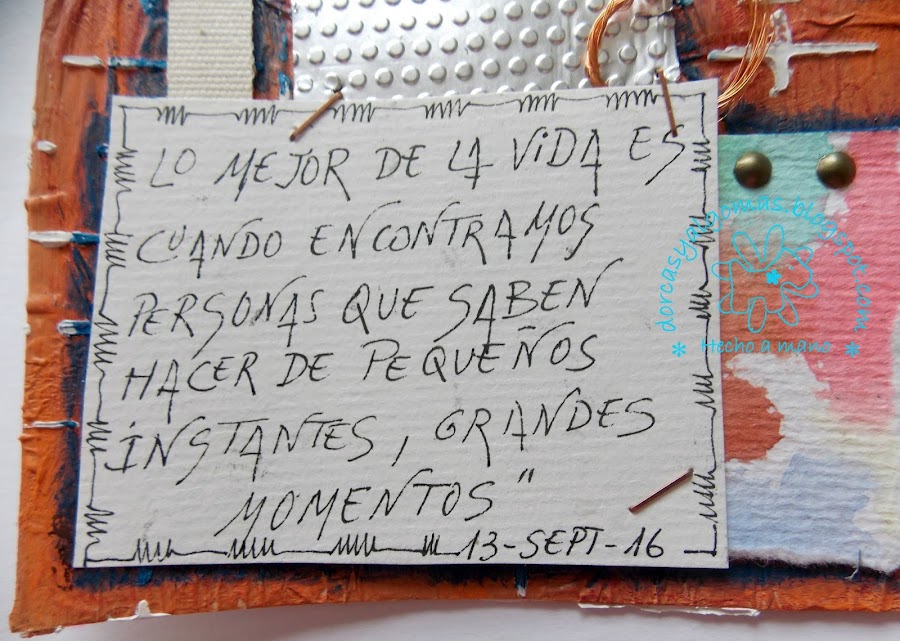 LO MEJOR DE LA ViDA ES
CUANDO ENCONTRAMOS
PERSONAS QUE SABEN
HACER DE PEQUEÑOS
iNSTANTES, GRANDES
MOMENTOS"
13-SEPT-16
dorcasyalgomas.blogspot.com
* Hecho a mano *